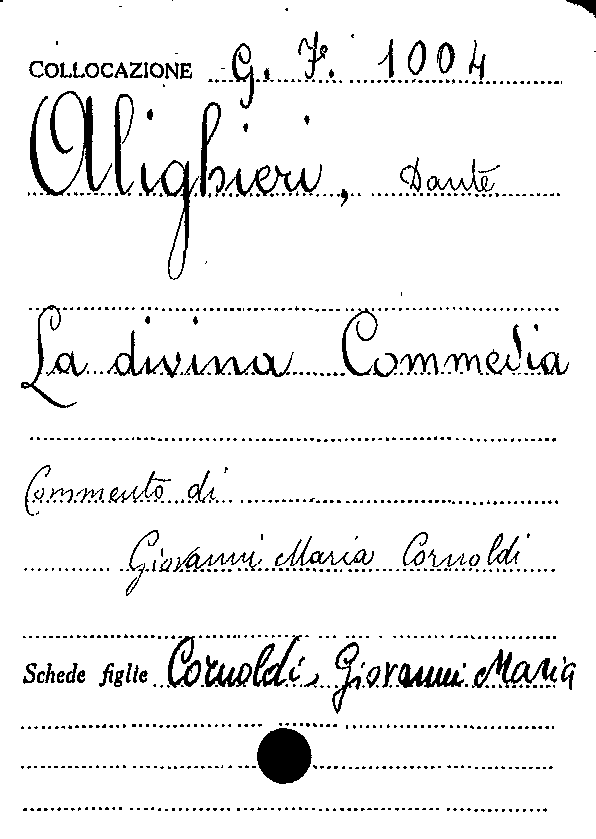 COLLOCAZIONE G. F. 1004
Alighieri, Dante
La divina Commedia
Commento di
Giovanni Maria Cornoldi
Schede figlie Cornoldi, Giovanni Maria